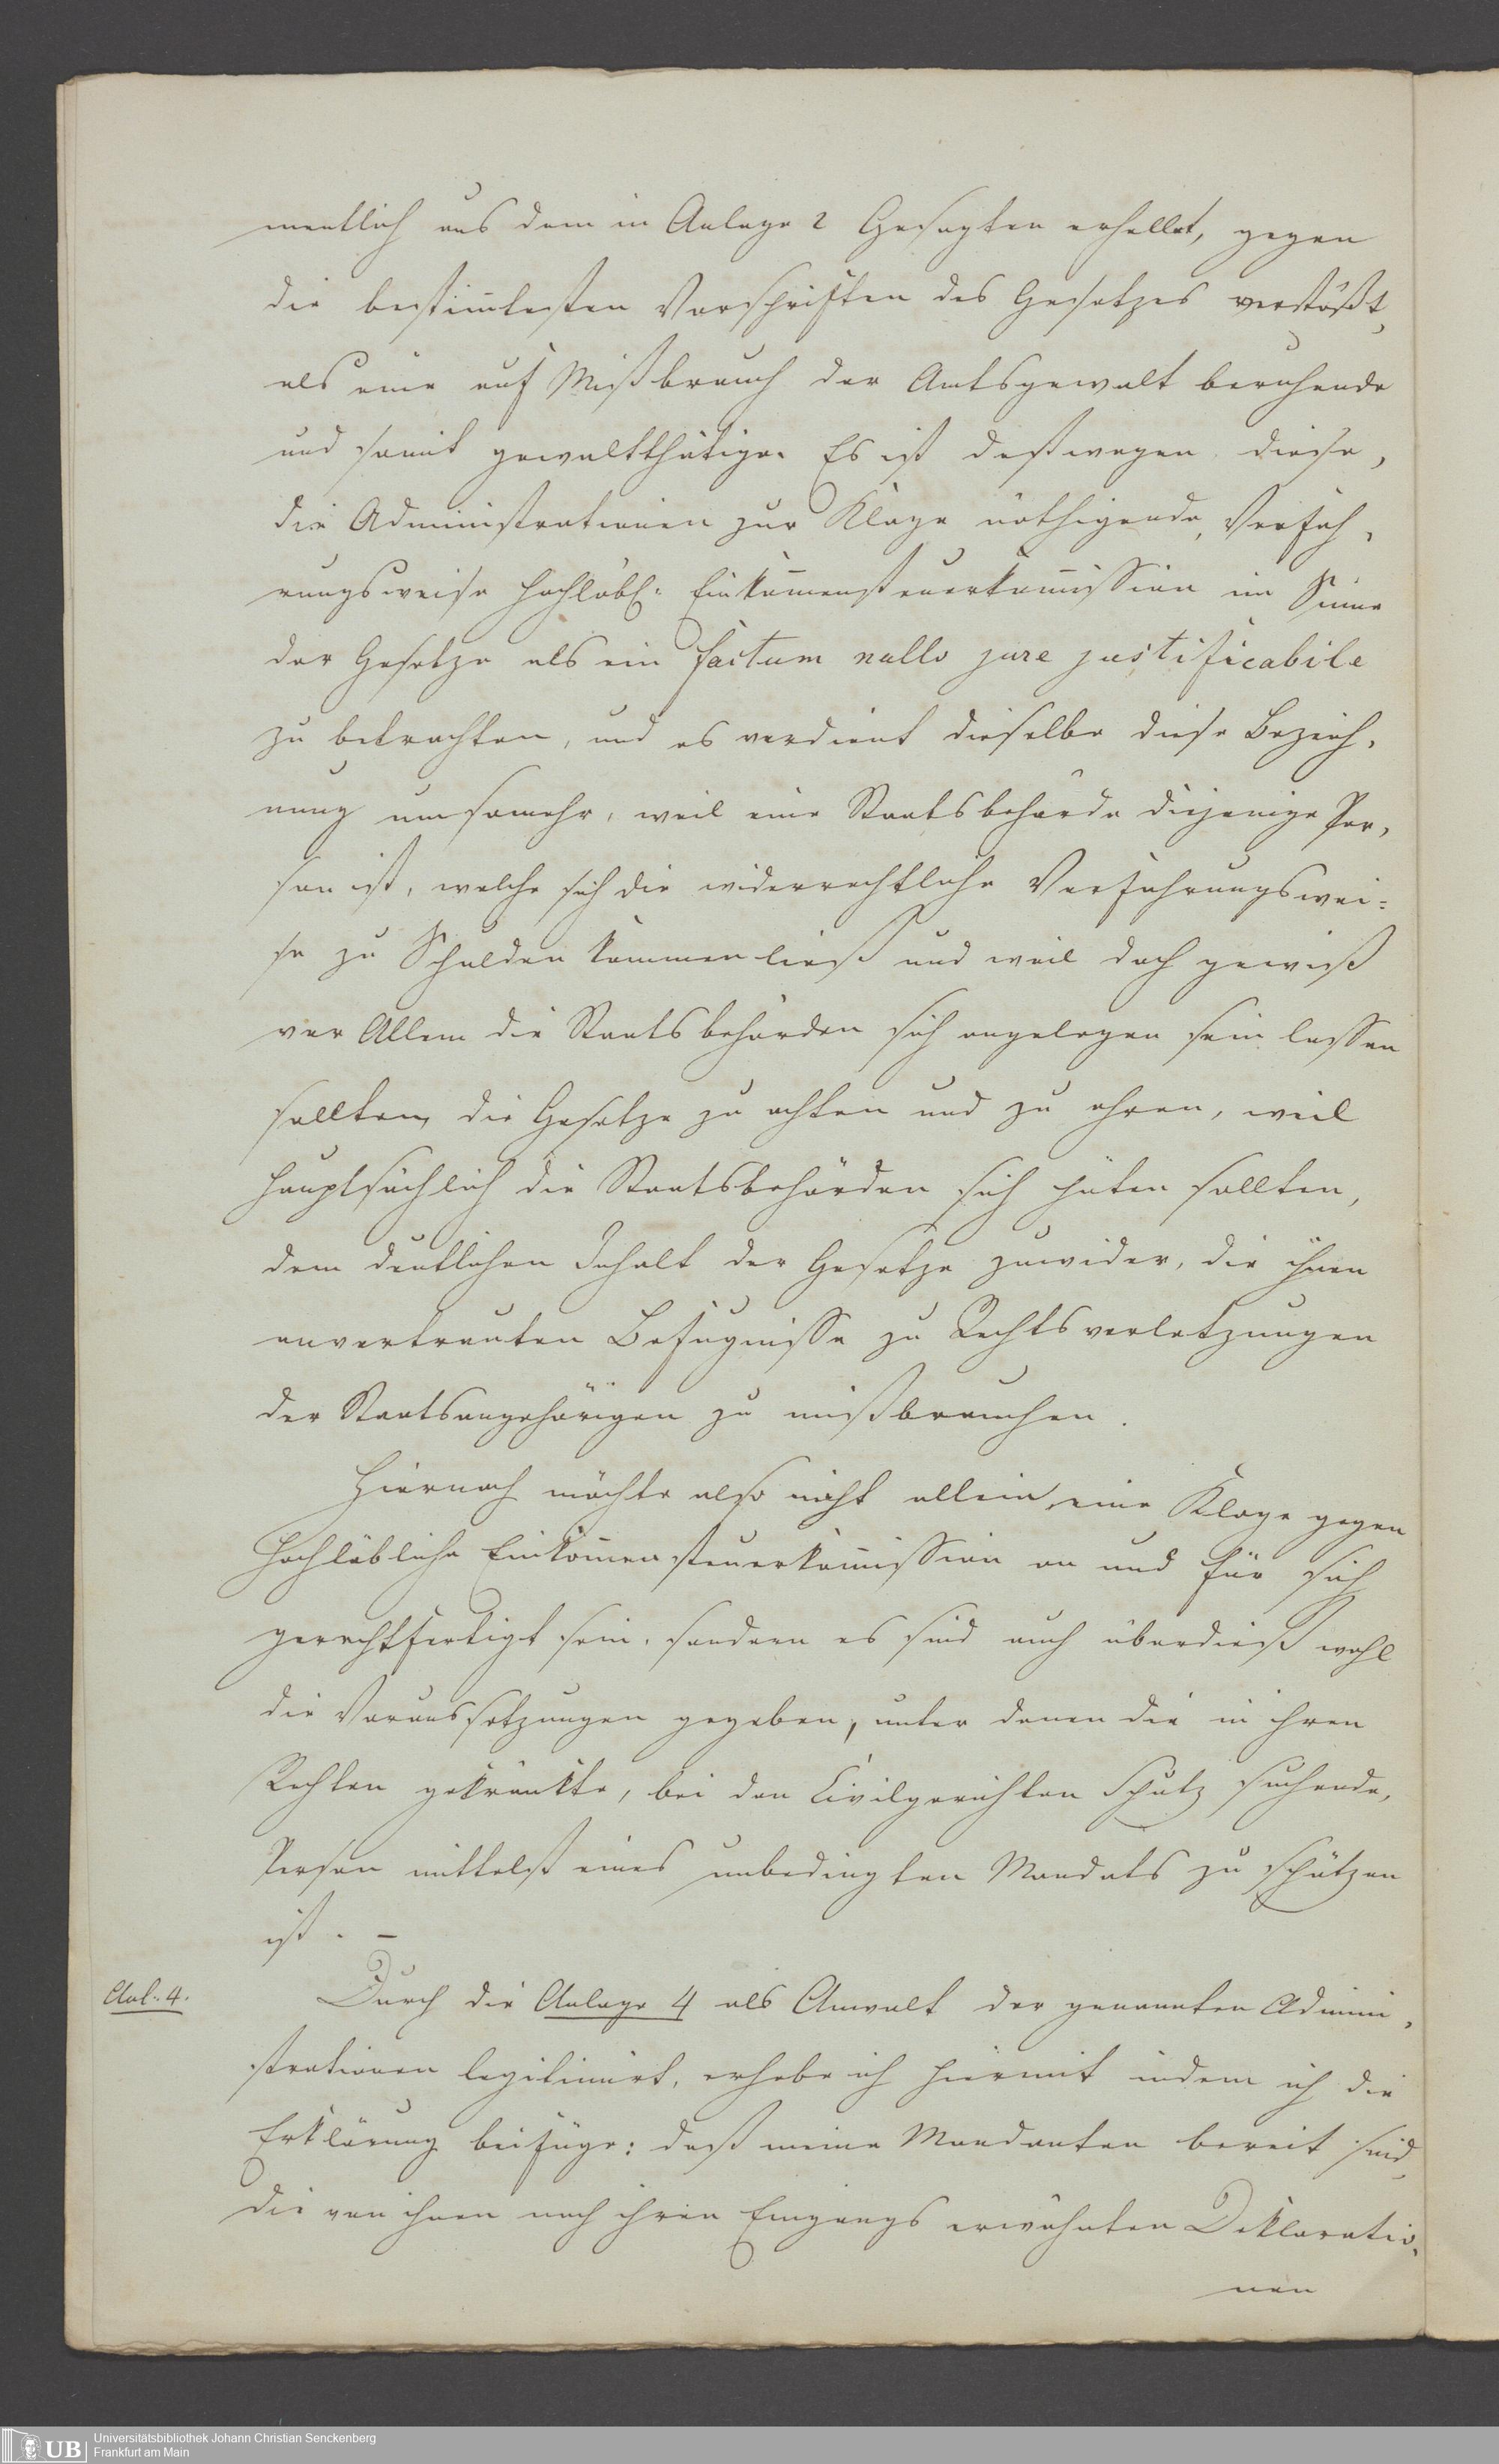 mentlich aus dem in Anlage 2 Gesagten erhellet, gegen
die bestim̄testen Vorschriften des Gesetzes verstößt,
als eine auf Mißbrauch der Amtsgewalt beruhende
und somit gewaltthätige. Es ist deßwegen diese,
die Administrationen zur Klage nöthigende, Verfah-
rungsweise hochlöbl: Einkom̄ensteuerkom̄ission im Sinne
der Gesetze als ein factum nullo jure justificabile
zu betrachten, und es verdient dieselbe diese Bezeich-
nung umsomehr, weil eine Staatsbehörde diejenige Per-
son ist, welche sich die widerrechtliche Verfahrungswei-
se zu Schulden kommen ließ und weil doch gewiß
vor Allem die Staatsbehörden sich angelegen sein lassen
sollten, die Gesetze zu achten und zu ehren, weil
hauptsächlich die Staatsbehörden sich hüten sollten,
dem deutlichen Inhalt der Gesetze zuwider, die ihnen
anvertrauten Befugnisse zu Rechtsverletzungen
der Staatsangehörigen zu mißbrauchen.
Hiernach möchte also nicht allein eine Klage gegen
Hochlöbliche Einkom̄ensteuerkom̄ission an und für sich
gerechtfertigt sein, sondern es sind auch überdieß wohl
die Voraussetzungen gegeben, unter denen die in ihren
Rechten gekränkte, bei den Civilgerichten Schutz suchende,
Person mittelst eines unbedingten Mandats zu schützen
ist. –
Anl. 4.
Durch die Anlage 4 als Anwalt der genannten Admini-
strationen legitimirt, erhebe ich hiermit indem ich die
Erklärung beifüge: daß meine Mandanten bereit sind,
die von ihnen nach ihren Eingangs erwähnten Deklaratio-
nen
UB
Universitätsbibliothek Johann Christian Senckenberg
Frankfurt am Main